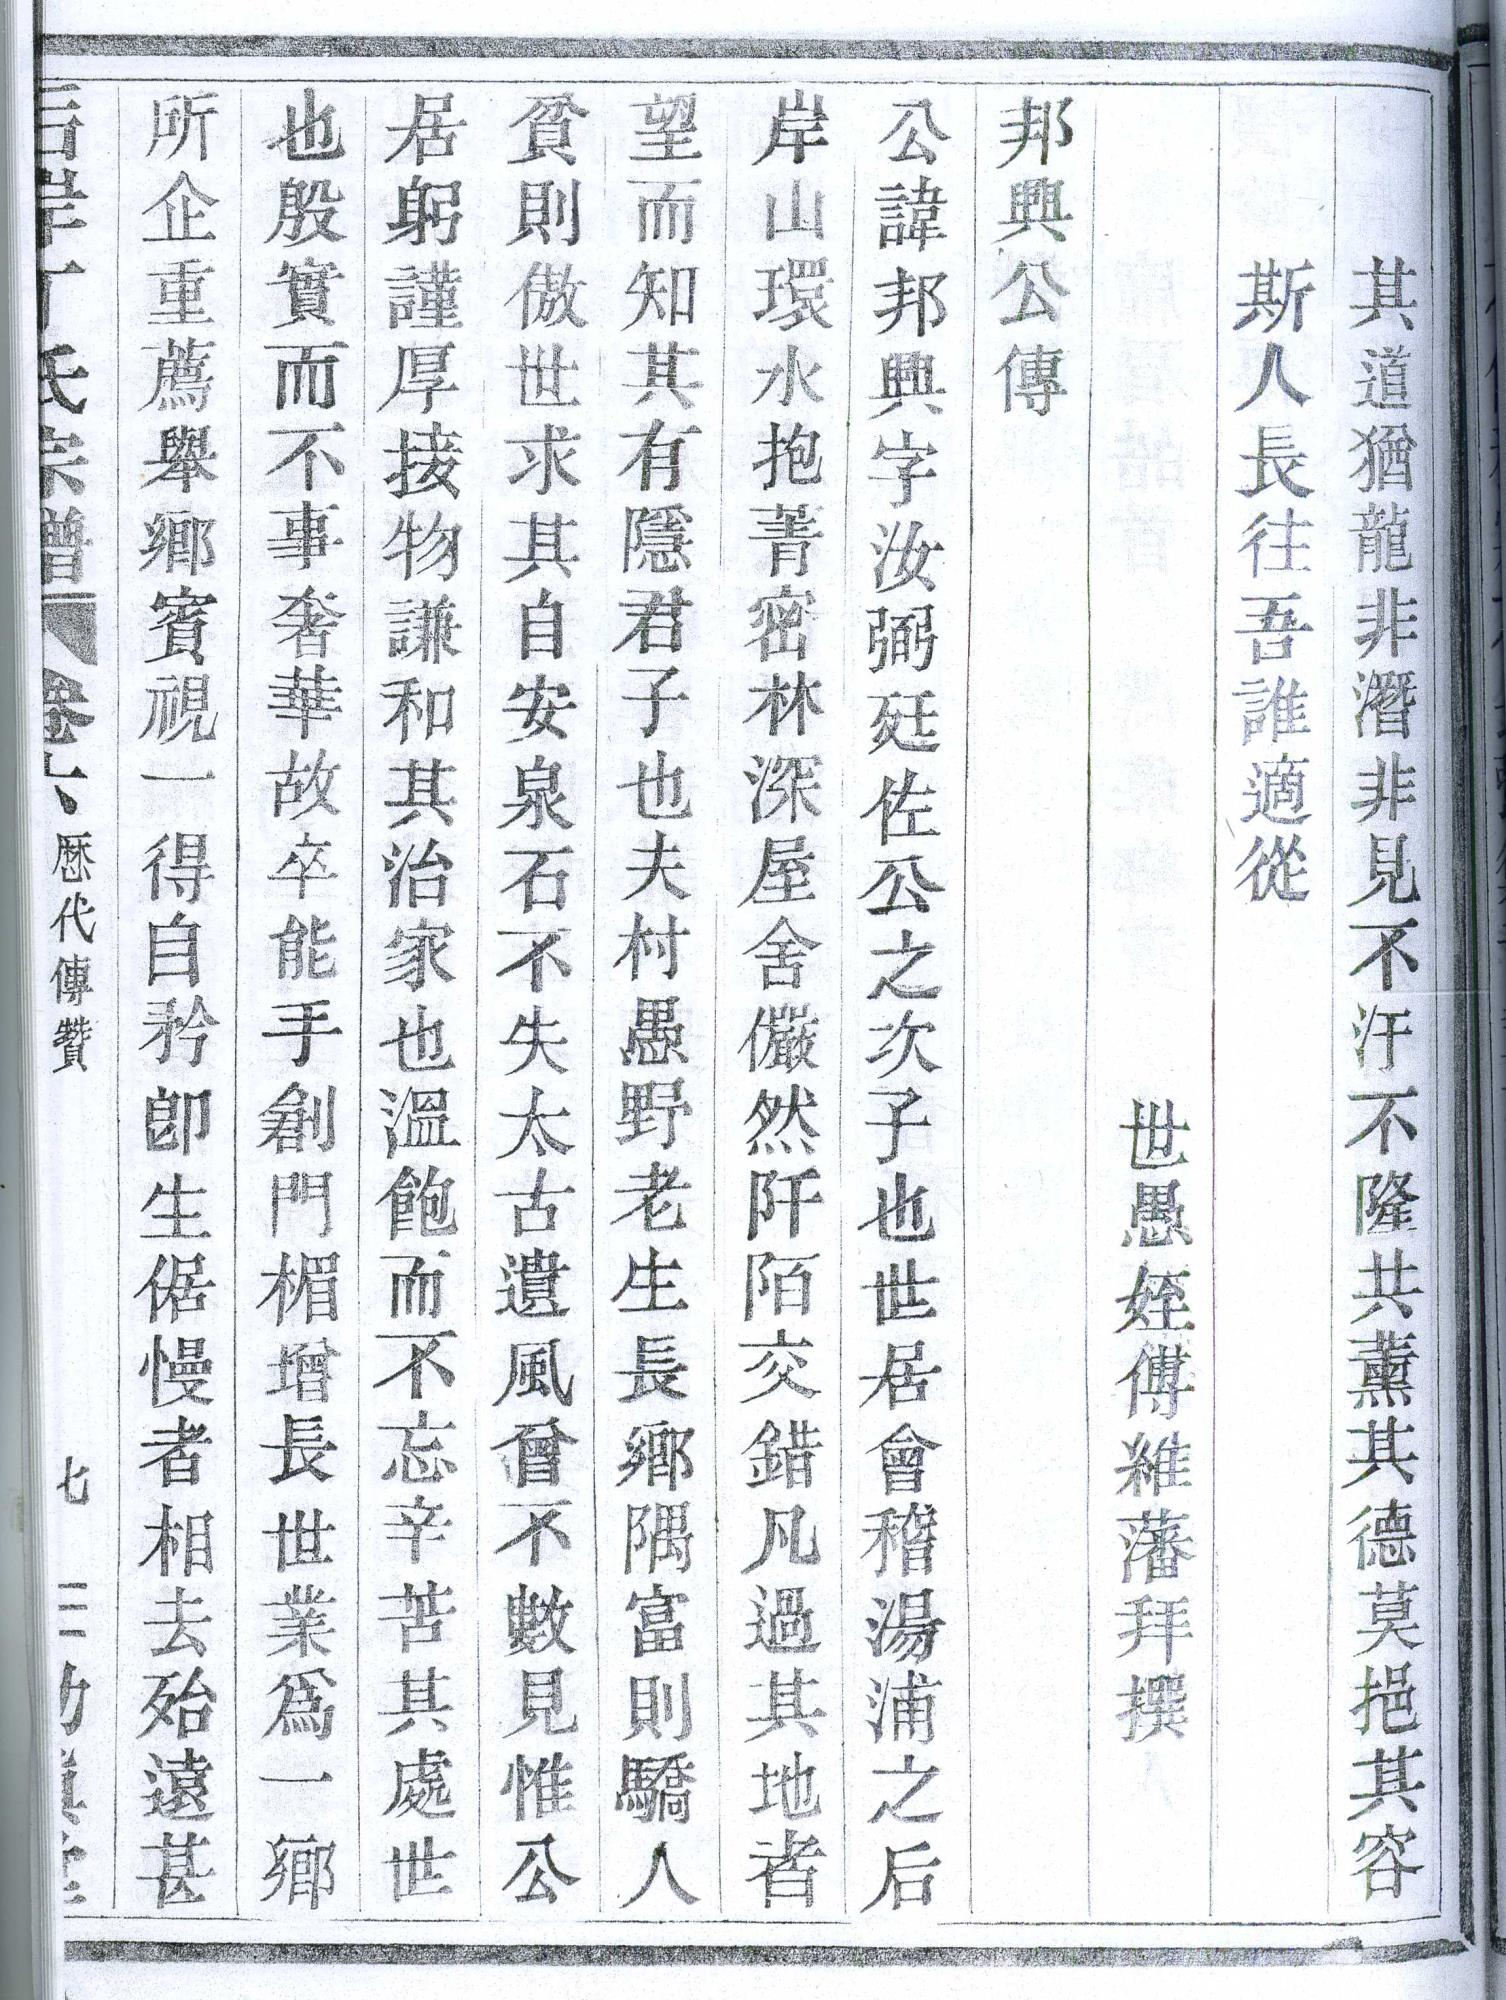 其道猶龍非潛非見不汙不隆共薰其德莫挹其容
斯人長往吾誰適從
世愚姪傅維藩拜撰
邦興公傳
公諱邦興字汝弼廷佐公之次子也世居會稽湯浦之后
岸山環水抱菁密林深屋舍儼然阡陌交錯凡過其地者
望而知其有隱君子也夫村愚野老生長鄉隅富則驕人
貧則傲世求其自安泉石不失太古遺風曾不數見惟公
居躬謹厚接物謙和其治家也溫飽而不忘辛苦其處世
也殷實而不事奢華故卒能手創門楣增長世業為一鄉
所企重薦舉鄉賓視一得自矜卽生倨慢者相去殆遠甚
后岸丁氏宗譜 卷 歷代傳贊 七 三